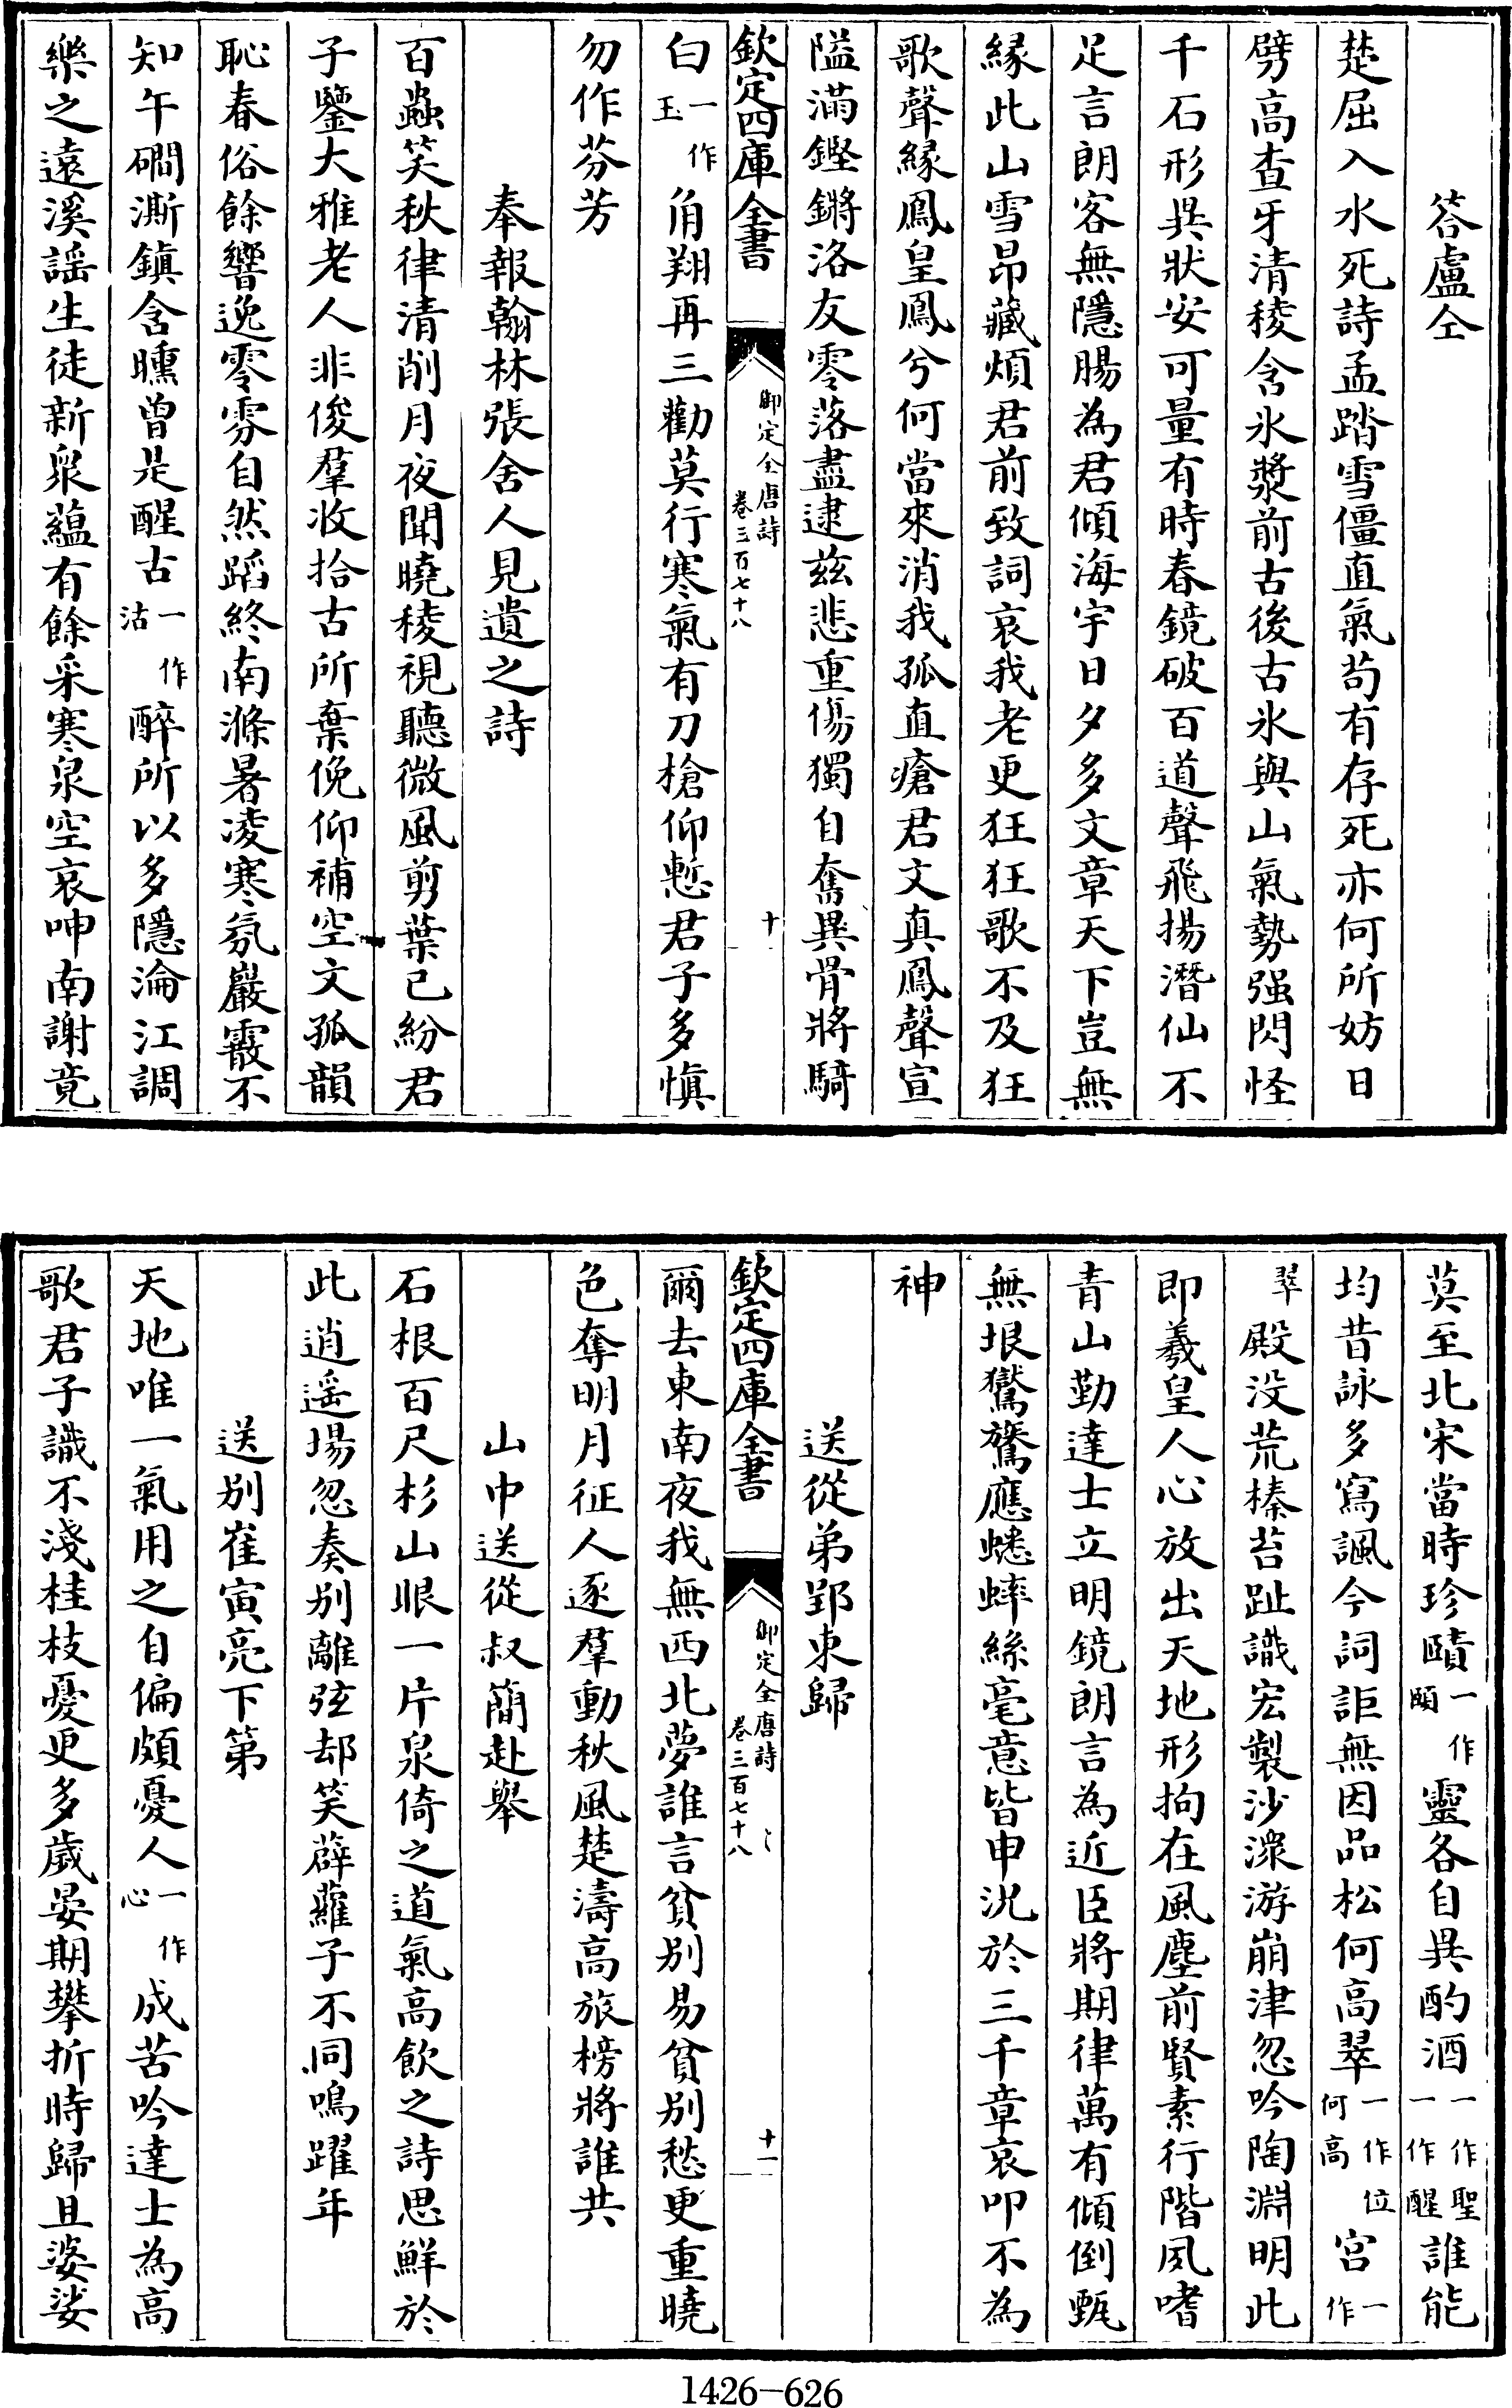 答盧仝
楚屈入水死詩孟踏雪僵直氣茍有存死亦何所妨日
劈髙查牙清稜含氷漿前古後古氷與山氣勢强閃怪
千石形異狀安可量有時春鏡破百道聲飛揚潛仙不
足言朗客無隱腸為君傾海宇日夕多文章天下豈無
縁此山雪昂藏煩君前致詞哀我老更狂狂歌不及狂
歌聲緣鳳皇鳳兮何當來消我孤直瘡君文真鳳聲宣
隘滿鏗鏘洛友零落盡逮兹悲重傷獨自奮異骨將騎
欽定四庫全書 御定全唐詩 卷三百七十八 十
白一作玉角翔再三勸莫行寒氣有刀槍仰慙君子多慎
勿作芬芳
奉報翰林張舍人見遺之詩
百蟲笑秋律清削月夜聞曉稜視聽微風剪葉已紛君
子鑒大雅老人非俊羣收拾古所棄俛仰補空文孤韻
恥春俗餘響逸零雰自然蹈終南滌暑凌寒氛巖霰不
知午礀澌鎮含曛曾是醒古一作沽醉所以多隱淪江調
樂之遠溪謡生徒新衆藴有餘采寒泉空哀呻南謝竟
莫至北宋當時珍賾一作頤靈各自異酌酒一作聖一作醒誰能
均昔詠多寫諷今詞詎無因品松何高翠一作位何高宫一作
翠殿没荒榛苔趾識宏製沙潨游崩津忽吟陶淵明此
即羲皇人心放出天地形拘在風塵前賢素行階夙嗜
青山勤達士立明鏡朗言為近臣將期律萬有傾倒甄
無垠鷲鶖應蟋蟀絲毫意皆申況於三千章哀叩不為
神
送從弟郢東歸
爾去東南夜我無西北夢誰言貧别易貧别愁更重曉
色奪明月征人逐羣動秋風楚濤高旅榜將誰共
山中送從叔簡赴舉
石根百尺杉山眼一片泉倚之道氣高飲之詩思鮮於
此逍遥場忽奏别離弦却笑薜蘿子不同鳴躍年
送别崔寅亮下第
天地唯一氣用之自偏頗憂人一作心成苦吟達士為高
歌君子識不淺桂枝憂更多歲晏期攀折時歸且婆娑
欽定四庫全書 御定全唐詩 卷三百七十八 十一
1426-626